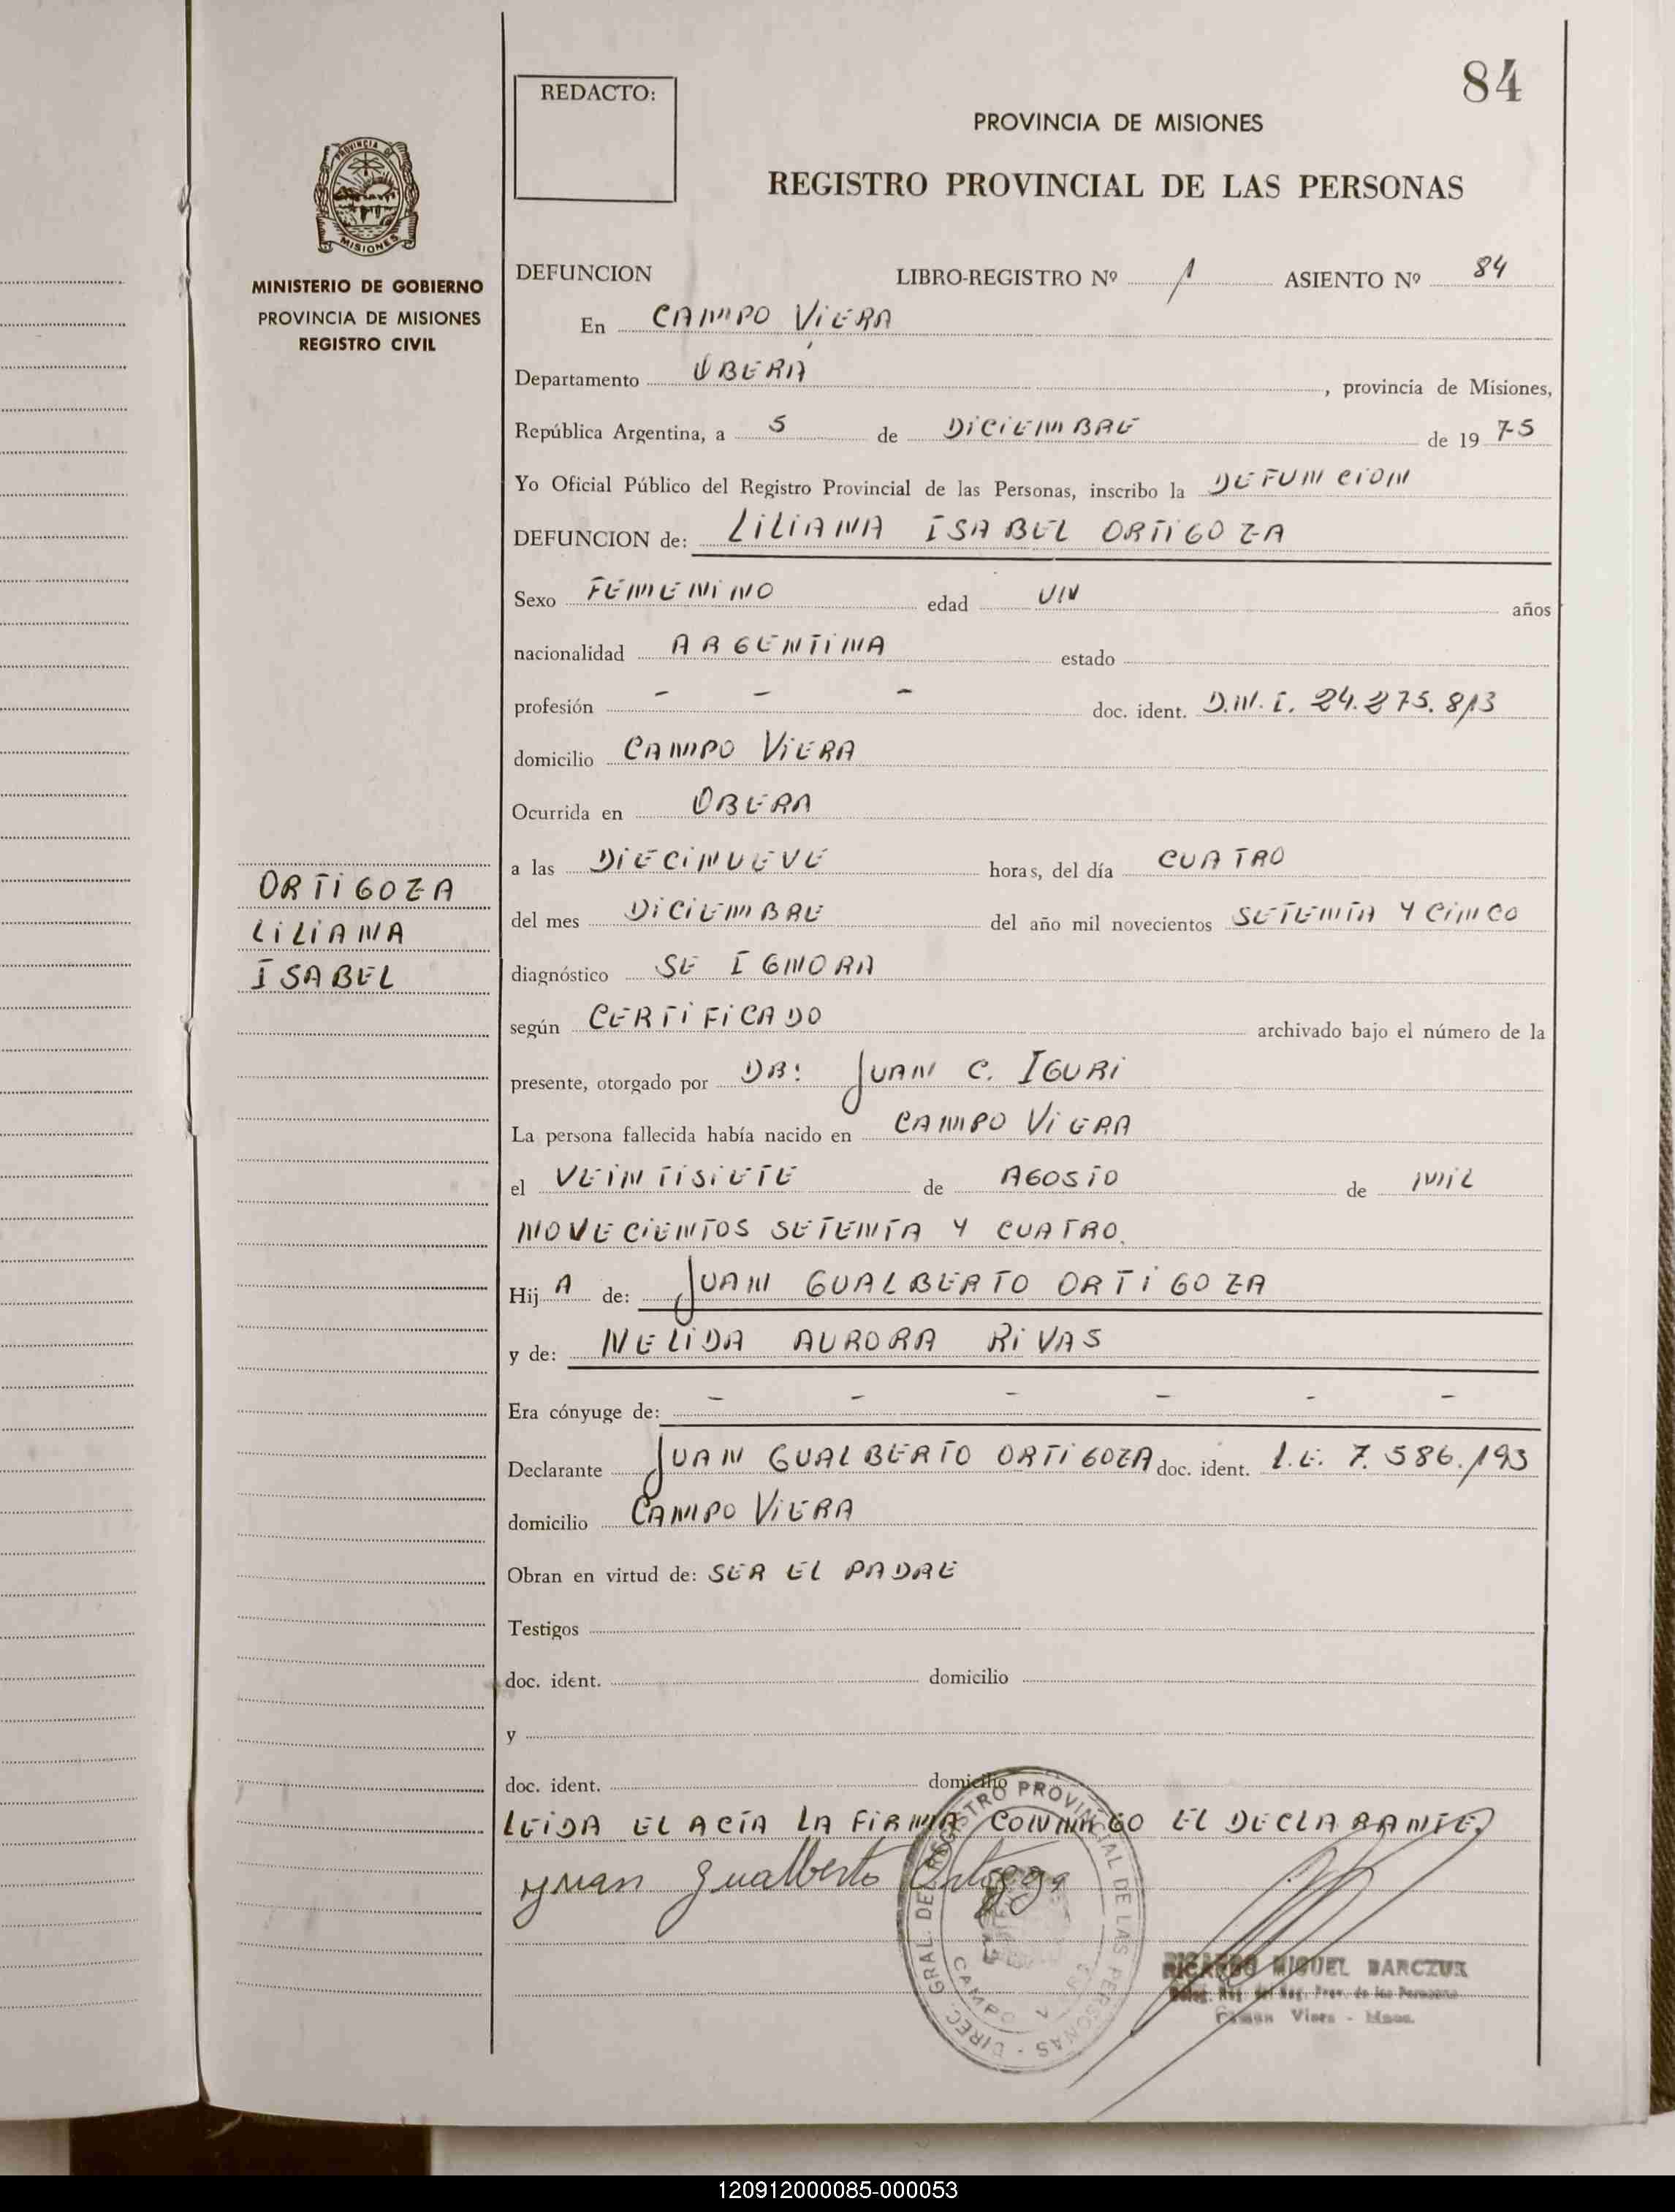 84
REDACTO:
PROVINCIA DE MISIONES
REGISTRO PROVINCIAL DE LAS PERSONAS
PROVINCIA DE
MISIONES
MINISTERIO DE GOBIERNO
PROVINCIA DE MISIONES
REGISTRO CIVIL
DEFUNCION LIBRO-REGISTRO Nº 1 ASIENTO Nº 84
En CAMPO VIERA
Departamento OBERÁ, provincia de Misiones,
República Argentina, a 5 de DICIEMBRE de 1975
Yo Oficial Público del Registro Provincial de las Personas, inscribo la DEFUNCION
DEFUNCION de: LILIANA ISABEL ORTIGOZA
Sexo FEMENINO edad UN años
nacionalidad ARGENTINA estado
profesión - - - doc. ident. D.N.I. 24.275.813
domicilio CAMPO VIERA
Ocurrida en OBERA
a las DIECINUEVE horas, del día CUATRO
del mes DICIEMBRE del año mil novecientos SETENTA Y CINCO
diagnóstico SE IGNORA
según CERTIFICADO archivado bajo el número de la
presente, otorgado por DR: JUAN C. IGURI
La persona fallecida había nacido en CAMPO VIERA
el VEINTISIETE de AGOSTO de MIL
NOVECIENTOS SETENTA Y CUATRO.
Hij A de: JUAN GUALBERTO ORTIGOZA
y de: NELIDA AURORA RIVAS
Era cónyuge de: - - - - - -
Declarante JUAN GUALBERTO ORTIGOZA doc. ident. L.E. 7.586.193
domicilio CAMPO VIERA
Obran en virtud de: SER EL PADRE
Testigos
doc. ident. domicilio
y
doc. ident. domicilio
LEIDA EL ACTA LA FIRMA CONMIGO EL DECLARANTE.
Juan Gualberto Ortigoza
ORTIGOZA
LILIANA
ISABEL
DIREC. GRAL. DEL REGISTRO PROVINCIAL DE LAS PERSONAS
CAMPO VIERA
RICARDO MIGUEL BARCZUK
Deleg. Reg. del Reg. Prov. de las Personas
Campo Viera - Mnes.
120912000085-000053